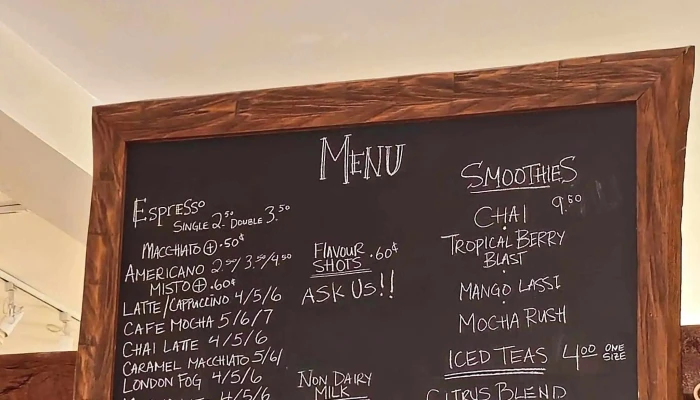 MENU
Espresso
SINGLE 2.50 DOUBLE 3.50
MACCHIATO + .50¢
AMERICANO 2.50/3.50/4.50
MISTO + .60¢
LATTE/CAPPUCCINO 4/5/6
CAFE MOCHA 5/6/7
CHAI LATTE 4/5/6
CARAMEL MACCHIATO 5/6/
LONDON FOG 4/5/6
4/5/6
FLAVOUR
SHOTS .60¢
ASK US!!
NON DAIRY
MILK
SMOOTHIES
CHAI 9.50
TROPICAL BERRY
BLAST
MANGO LASSI
MOCHA RUSH
ICED TEAS 4.00 ONE
SIZE
CITRUS BLEND